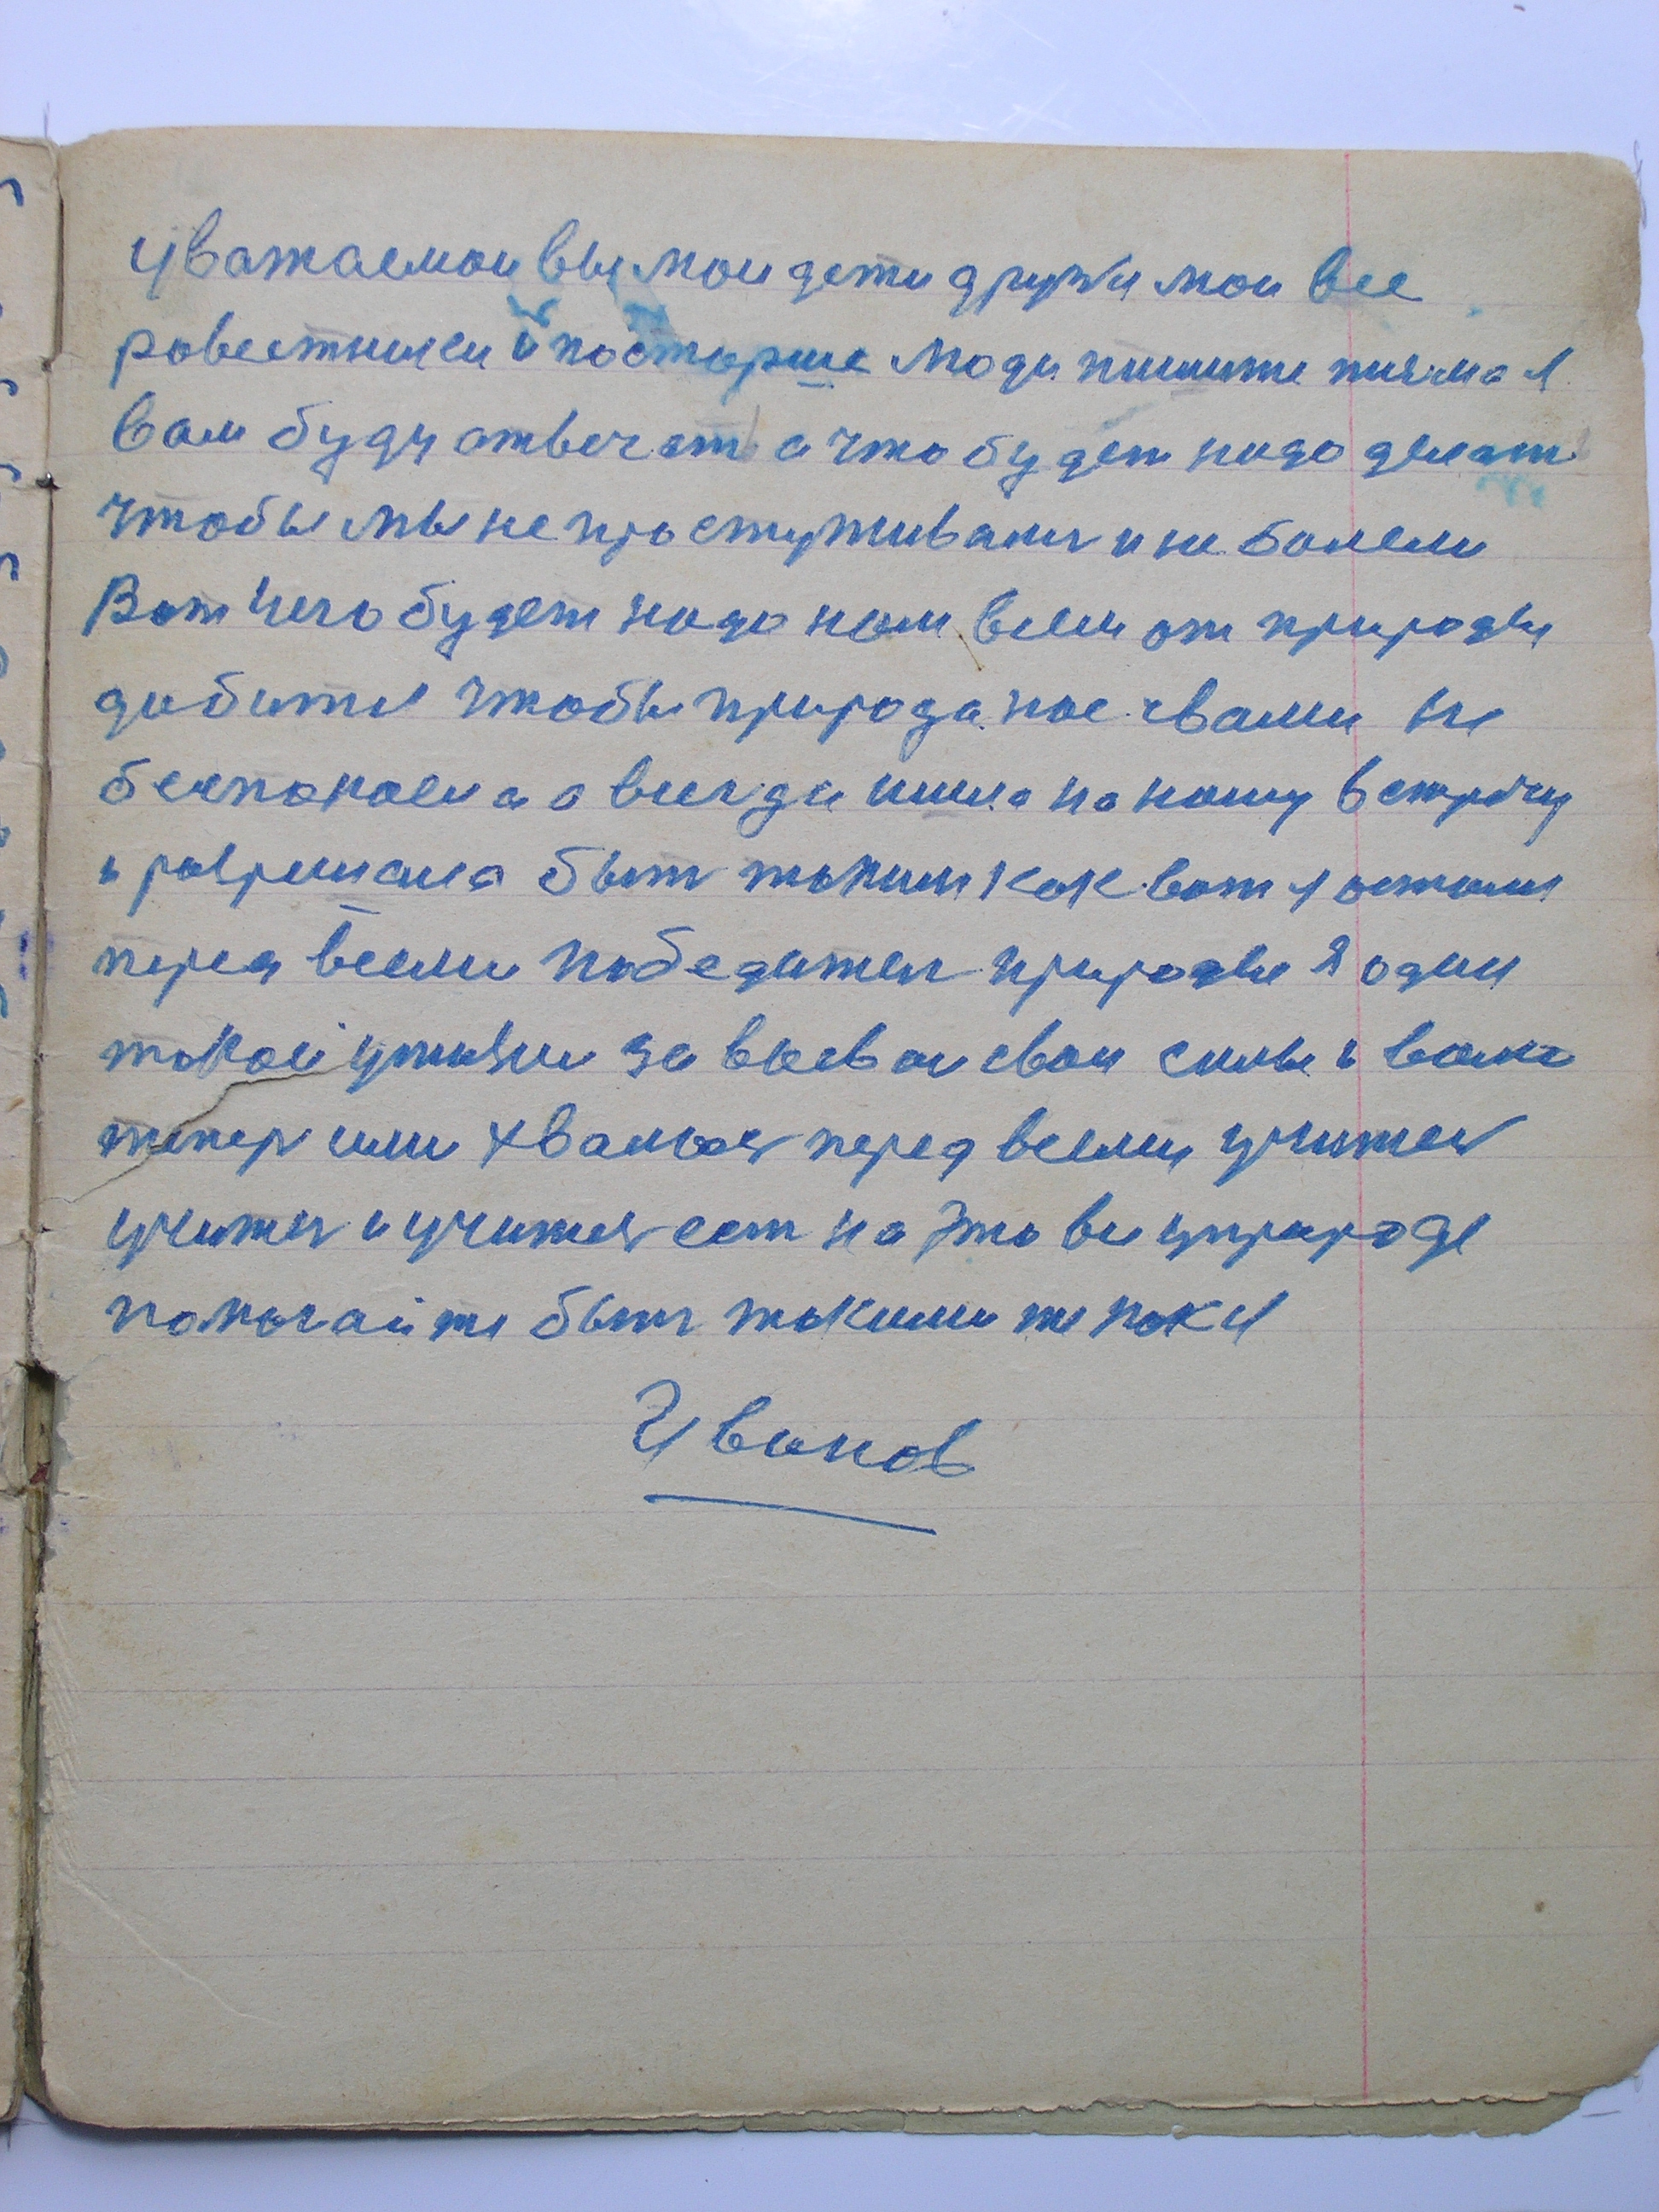 уважаемаи вы мои дети друзи мои все
равестники и постарше люди пишите письма я
вам буду отвечат а что будет надо делат
чтобы мы не простуживалис и не болели
Вот чего будет надо нам всем от природы
добится чтобы природа нас с вами не
беспокоела а всегда шила на нашу встречу
и разришала быт такими как вот я остался
перед всеми победител природы я один
такой у жизни завоевал свои силы и волю
тепер ими хвалюся перед всеми учитес
учитес и учитес ест на это все у природе
помогайте быт такими же как я
Иванов